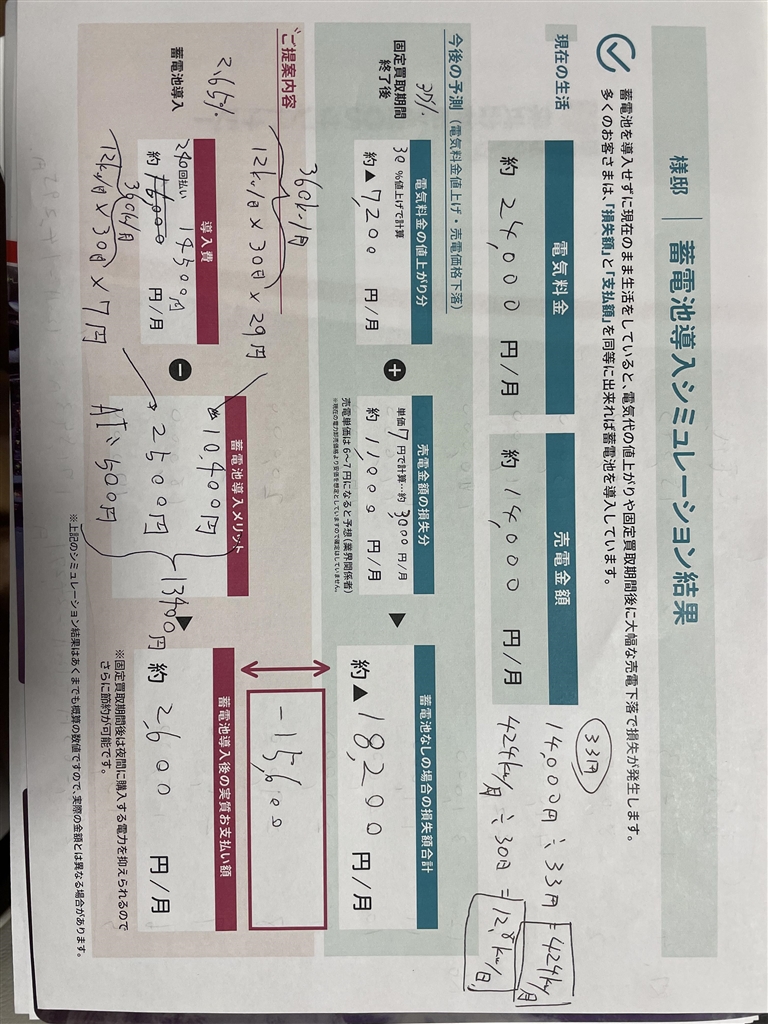 様邸 | 蓄電池導入シミュレーション結果
蓄電池を導入せずに現在のまま生活をしていると、電気代の値上がりや固定買取期間後に大幅な売電下落で損失が発生します。
多くのお客さまは、「損失額」と「支払額」を同等に出来れば蓄電池を導入しています。
33円
14,000円÷33円=424kw/月
424kw/月÷30日=12.8kw/日
現在の生活
電気料金
約 24,000 円/月
売電金額
約 14,000 円/月
今後の予測(電気料金値上げ・売電価格下落)
固定買取期間
終了後
電気料金の値上がり分
30%値上げで計算
約▲7,200 円/月
+
売電金額の損失分
単価7円で計算…約3000円/月
約 11,000 円/月
売電単価は6~7円になると予想(業界関係者)
▶
蓄電池なしの場合の損失額合計
約▲18,200 円/月
-15,600
ご提案内容
360kw/月
12kw/日×30日×29円
2.65%
蓄電池導入
導入費
240回払い
14500円
約 16,000 円/月
360kw/月
12kw/日×30日×7円
−
蓄電池導入メリット
10,400円
→2500円
AI、500円
13400円
▶
蓄電池導入後の実質お支払い額
約 2,600 円/月
※固定買取期間後は夜間に購入する電力を抑えられるので
さらに節約が可能です。
※上記のシミュレーション結果はあくまでも概算の数値ですので、実際の金額とは異なる場合があります。